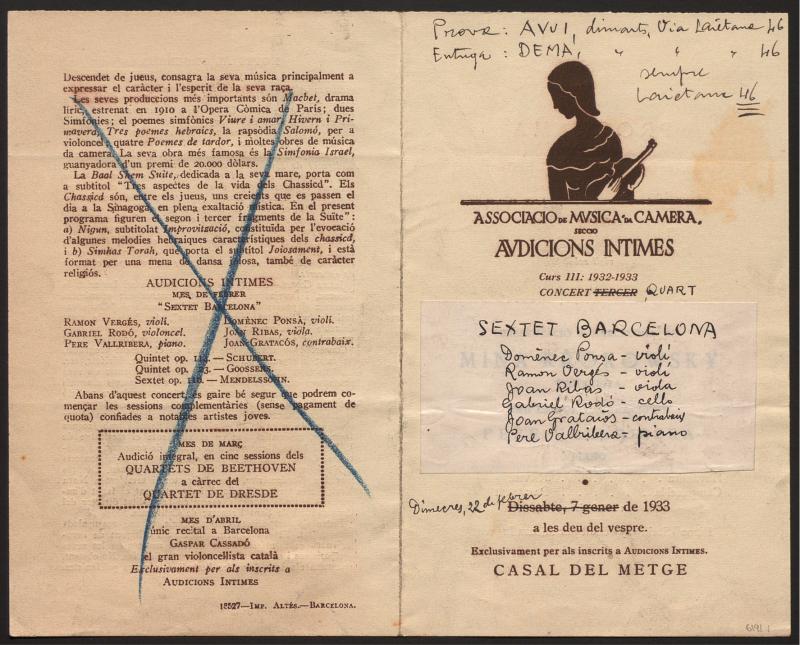 Descendet de jueus, consagra la seva música principalment a
expressar el caràcter i l'esperit de la seva raça.
Les seves produccions més importants són Macbet, drama
líric, estrenat en 1910 a l'Opera Còmica de París; dues
Simfonies; el poemes simfònics Viure i amar, Hivern i Pri-
mavera, Tres poemes hebraics, la rapsòdia Salomó, per a
violoncel, quatre Poemes de tardor, i moltes obres de música
da camera. La seva obra més famosa és la Simfonia Israel,
guanyadora d'un premi de 20.000 dòlars.
La Baal Shem Suite, dedicada a la seva mare, porta com
a subtítol "Tres aspectes de la vida dels Chassicd". Els
Chassicd són, entre els jueus, uns creients que es passen el
dia a la Sinagoga, en plena exaltació mística. En el present
programa figuren el segon i tercer fragments de la Suite":
a) Nigun, subtitolat Improvització, constituïda per l'evocació
d'algunes melodies hebraiques característiques dels chassicd,
i b) Simhas Torah, que porta el subtítol Joiosament, i està
format per una mena de dansa joiosa, també de caràcter
religiós.
AUDICIONS INTIMES
MES DE FEBRER
"SEXTET BARCELONA"
RAMON VERGÉS, violí. DOMÈNEC PONSÀ, violí.
GABRIEL RODÓ, violoncel. JOAN RIBAS, viola.
PERE VALLRIBERA, piano. JOAN GRATACÓS, contrabaix.
Quintet op. 114. — SCHUBERT.
Quintet op. 23. — GOOSSENS.
Sextet op. 110. — MENDELSSOHN.
Abans d'aquest concert, és gaire bé segur que podrem co-
mençar les sessions complementàries (sense pagament de
quota) confiades a notables artistes joves.
MES DE MARÇ
Audició integral, en cinc sessions dels
QUARTETS DE BEETHOVEN
a càrrec del
QUARTET DE DRESDE
MES D'ABRIL
únic recital a Barcelona
GASPAR CASSADÓ
el gran violoncellista català
Exclusivament per als inscrits a
AUDICIONS INTIMES
18527—IMP. ALTÉS.—BARCELONA.
Prova: AVUI, dimarts, Via Laietana 46
Entrega: DEMA, " " " 46
sempre
Laietana 46
ASSOCIACIO DE MVSICA DA CAMERA.
SECCIO
AVDICIONS INTIMES
Curs III: 1932-1933
CONCERT TERCER QUART
SEXTET BARCELONA
Domènec Ponsa - violí
Ramon Vergés - violí
Joan Ribas - viola
Gabriel Rodó - cello
Joan Gratacós - contrabaix
Pere Vallribera - piano
Dimecres, 22 de febrer
Dissabte, 7 gener de 1933
a les deu del vespre.
Exclusivament per als inscrits a AUDICIONS INTIMES.
CASAL DEL METGE